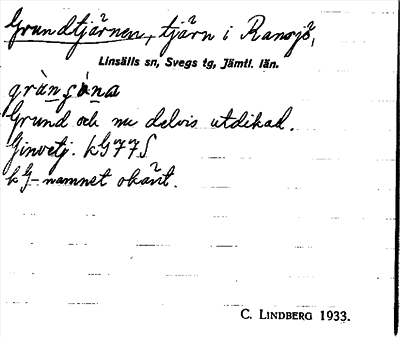 Grundtjärnen, tjärn i Ransjö,
Linsälls sn, Svegs tg, Jämtl. län.
Grund och nu delvis utdikad.
Ginvetj. kG77S
kG-namnet okänt.
C. LINDBERG 1933.